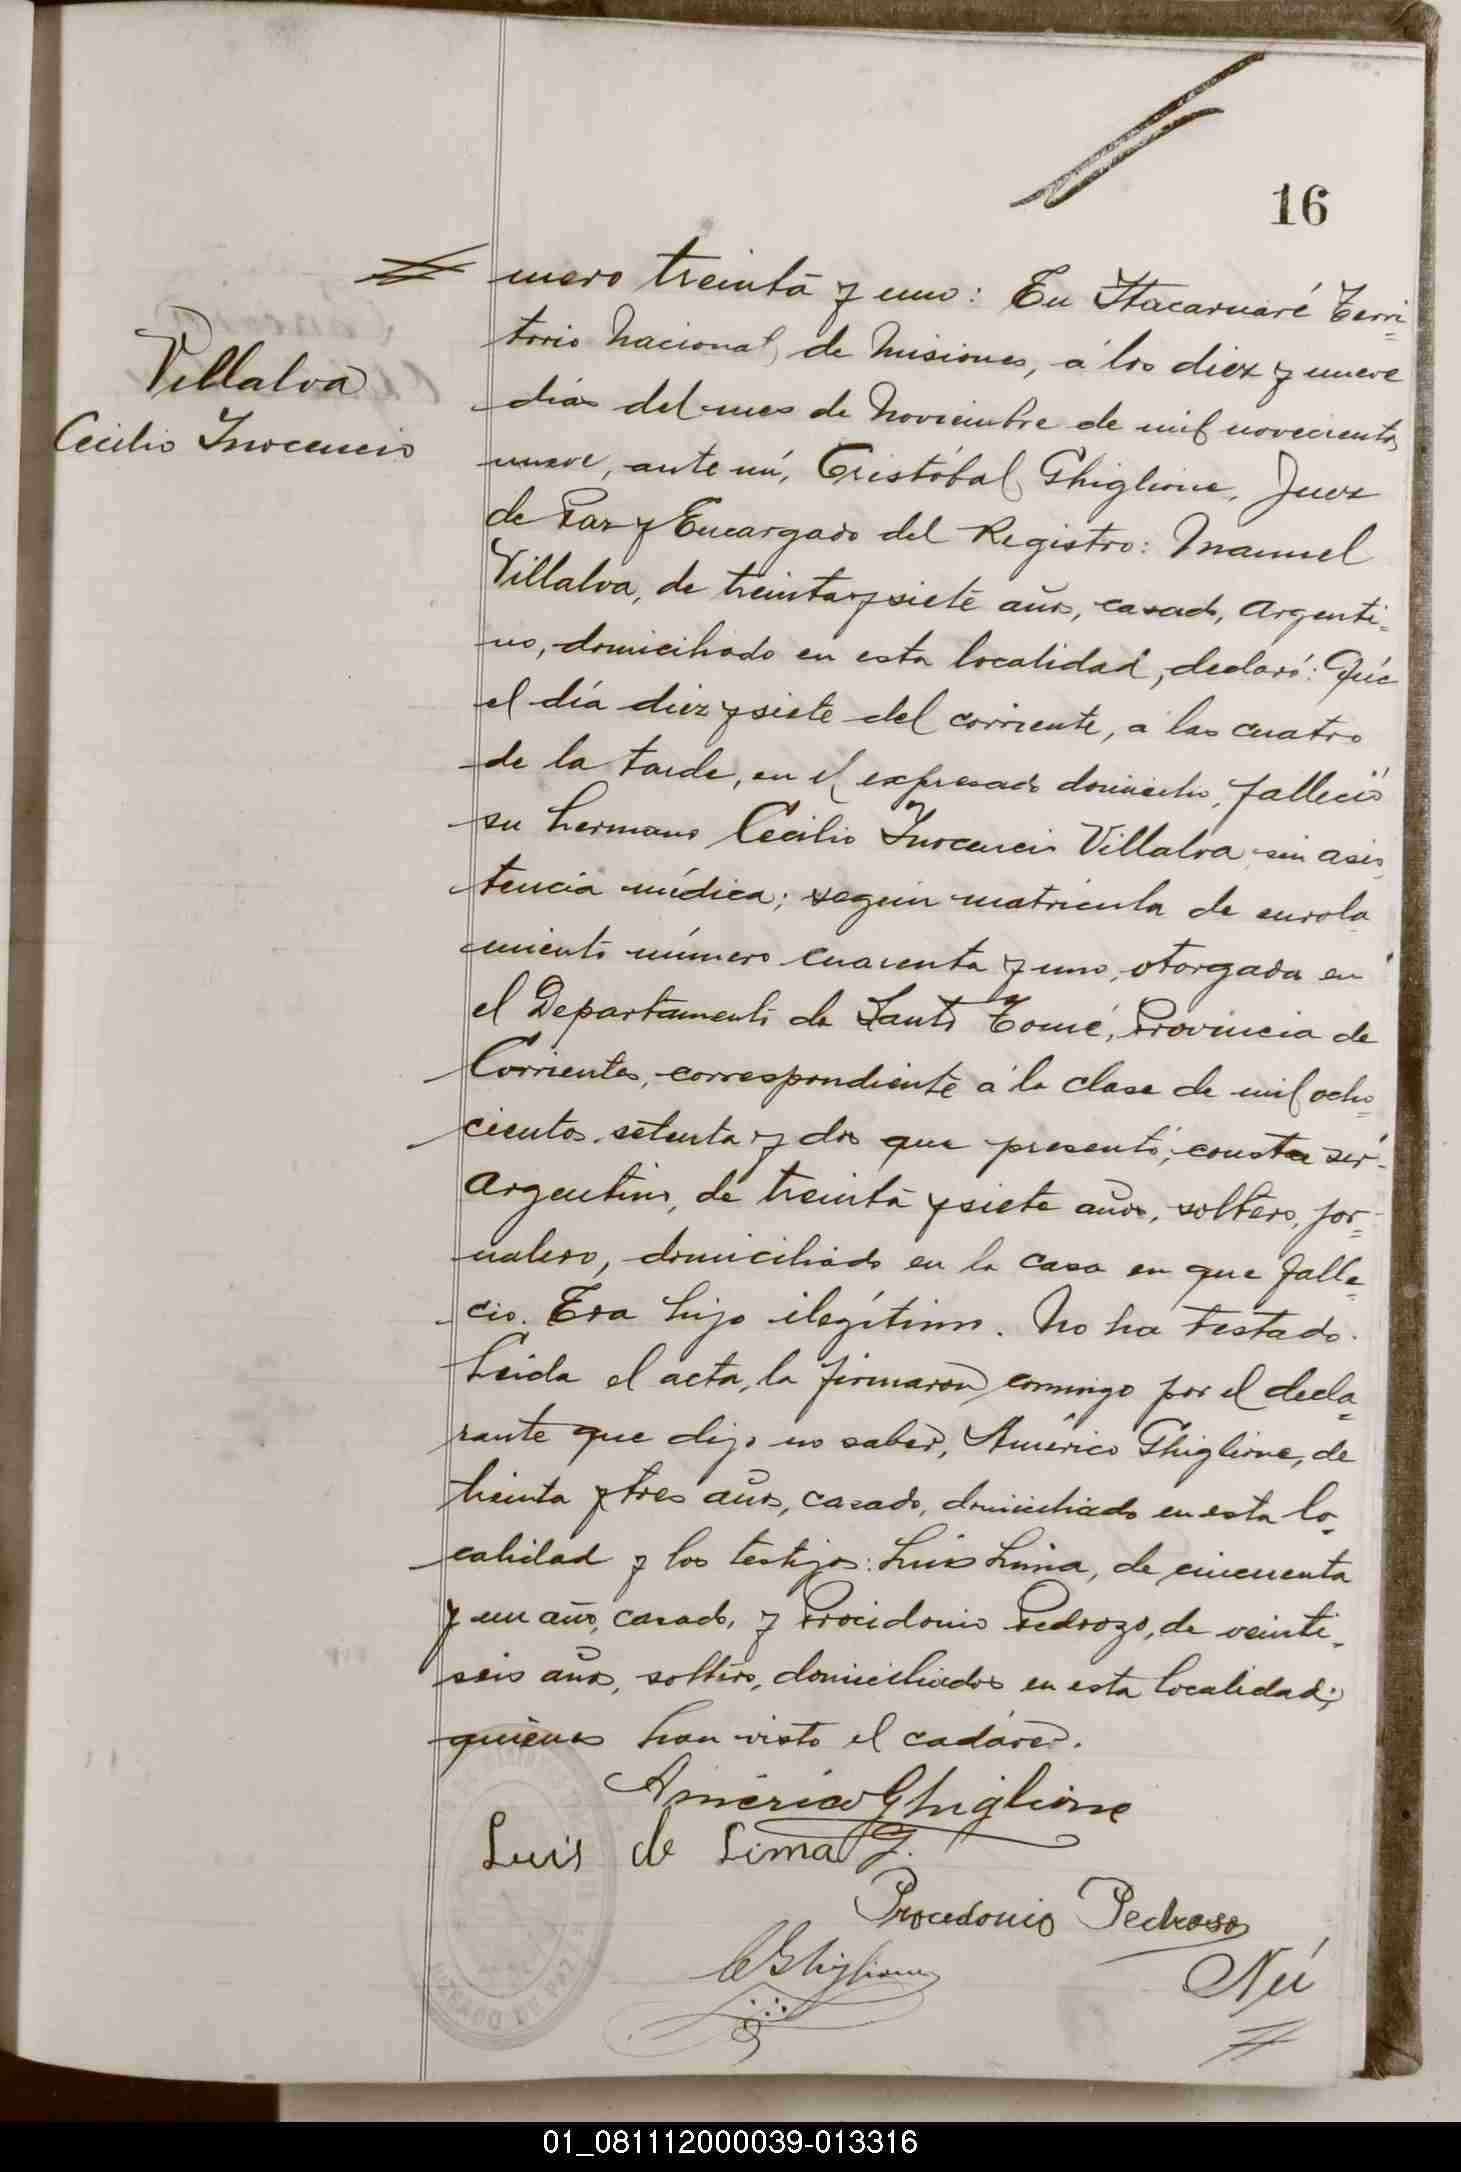 16
mero treinta y uno: En Itacaruaré Terri=
torio Nacional de Misiones, á los diez y nueve
dias del mes de Noviembre de mil novecientos
nueve, ante mí, Cristóbal Ghiglione, Juez
de Paz y Encargado del Registro: Manuel
Villalva, de treinta y siete años, casado, argenti=
no, domiciliado en esta localidad, declaró: Qué
el día diez y siete del corriente, a las cuatro
de la tarde, en el expresado domicilio, falleció
su hermano Cecilio Inocencio Villalva sin asis
tencia médica; segun matricula de enrola
miento número cuarenta y uno, otorgada en
el Departamento de Santo Tomé, Provincia de
Corrientes, correspondiente á la clase de mil ocho=
cientos setenta y dos que presentó, consta ser
argentino, de treinta y siete años, soltero, jor=
nalero, domiciliado en la casa en que falle=
cio. Era hijo ilegítimo. No ha testado.
Leida el acta, la firmaron conmigo por el decla=
rante que dijo no saber, Américo Ghiglione, de
treinta y tres años, casado, domiciliado en esta lo=
calidad y los testigos: Luis Lima, de cincuenta
y un año, casado, y Procidonio Pedrozo, de veinti=
seis años, soltero, domiciliados en esta localidad;
quienes han visto el cadáver.
Villalva
Cecilio Inocencio
Américo Ghiglione
Luis de Lima G.
Procedonio Pedroso
C Ghiglione
Nú
JUZGADO DE PAZ
01_081112000039-013316